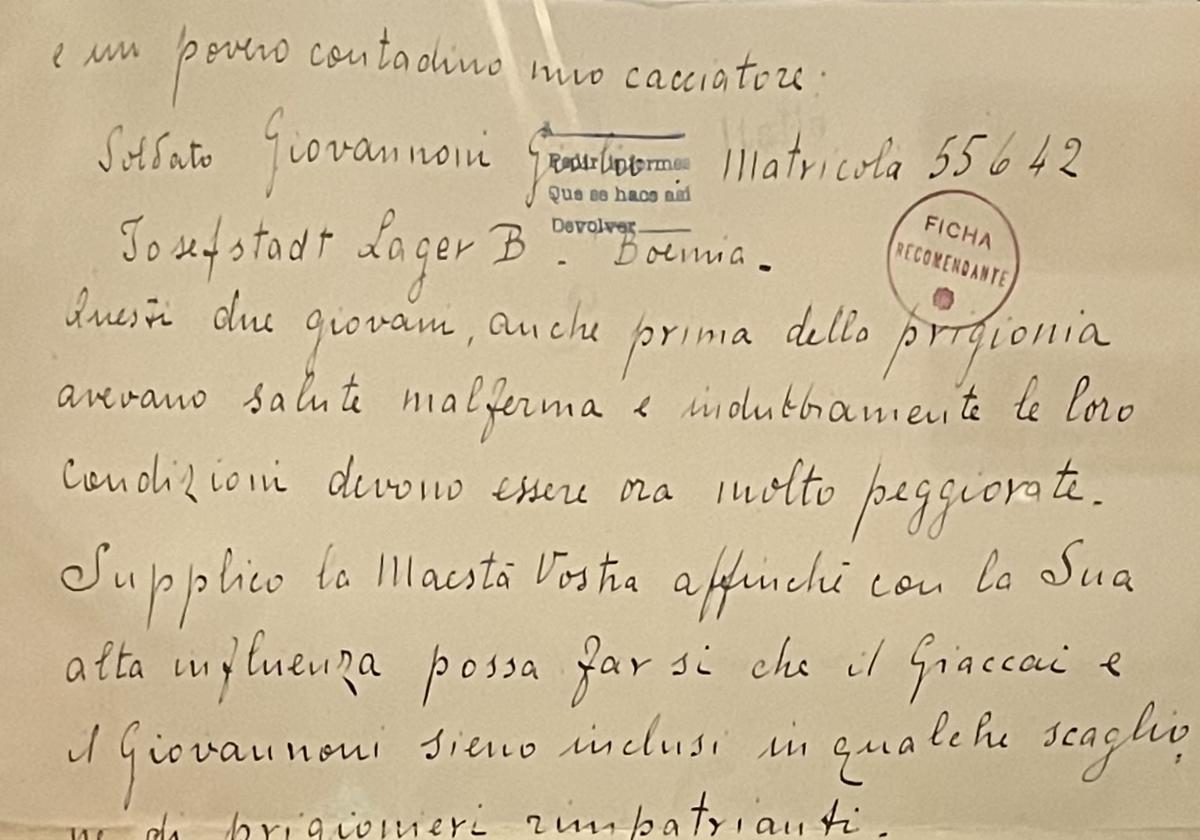 e un povero contadino mio cacciatore:
Soldato Giovannoni Giulio Matricola 55642
A
Pedir informes
Que se hace así
Devolver
Josefstadt Lager B. Boemia.
FICHA
RECOMENDANTE
Questi due giovani, anche prima della prigionia
avevano salute malferma e indubbiamente le loro
condizioni devono essere ora molto peggiorate.
Supplico la Maestà Vostra affinchè con la Sua
alta influenza possa far si che il Giaccai e
il Giovannoni sieno inclusi in qualche scaglio
ne di prigionieri rimpatrianti.